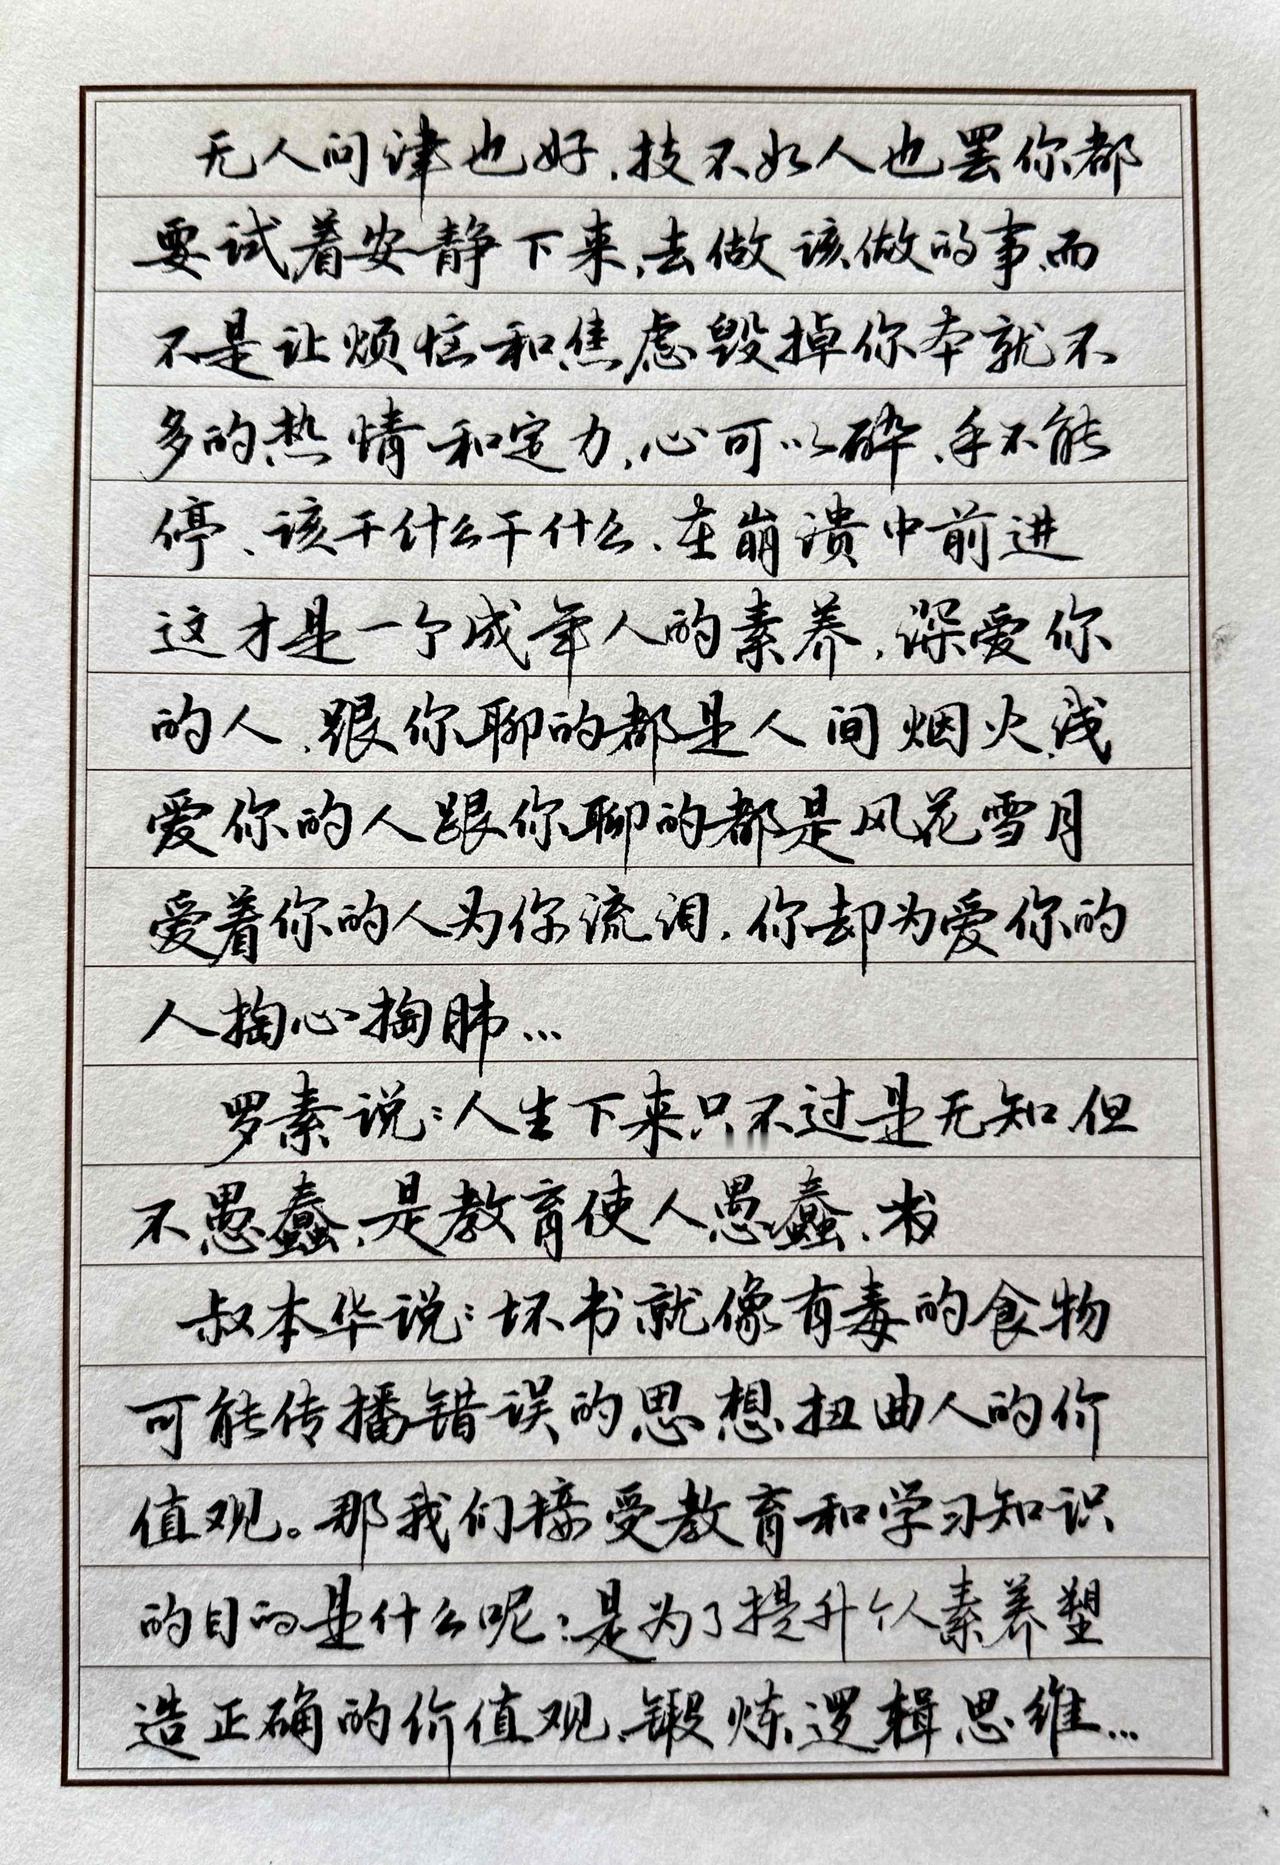 无人问津也好,技不如人也罢你都
要试着安静下来,去做该做的事,而
不是让烦恼和焦虑毁掉你本就不
多的热情和定力,心可以碎、手不能
停、该干什么干什么、在崩溃中前进
这才是一个成年人的素养,深爱你
的人、跟你聊的都是人间烟火,浅
爱你的人跟你聊的都是风花雪月
爱着你的人为你流泪,你却为爱你的
人掏心掏肺…
罗素说:人生下来只不过是无知,但
不愚蠢、是教育使人愚蠢、
叔本华说:坏书就像有毒的食物
可能传播错误的思想扭曲人的价
值观。那我们接受教育和学习知识
的目的是什么呢?是为了提升个人素养塑
造正确的价值观、锻炼逻辑思维…